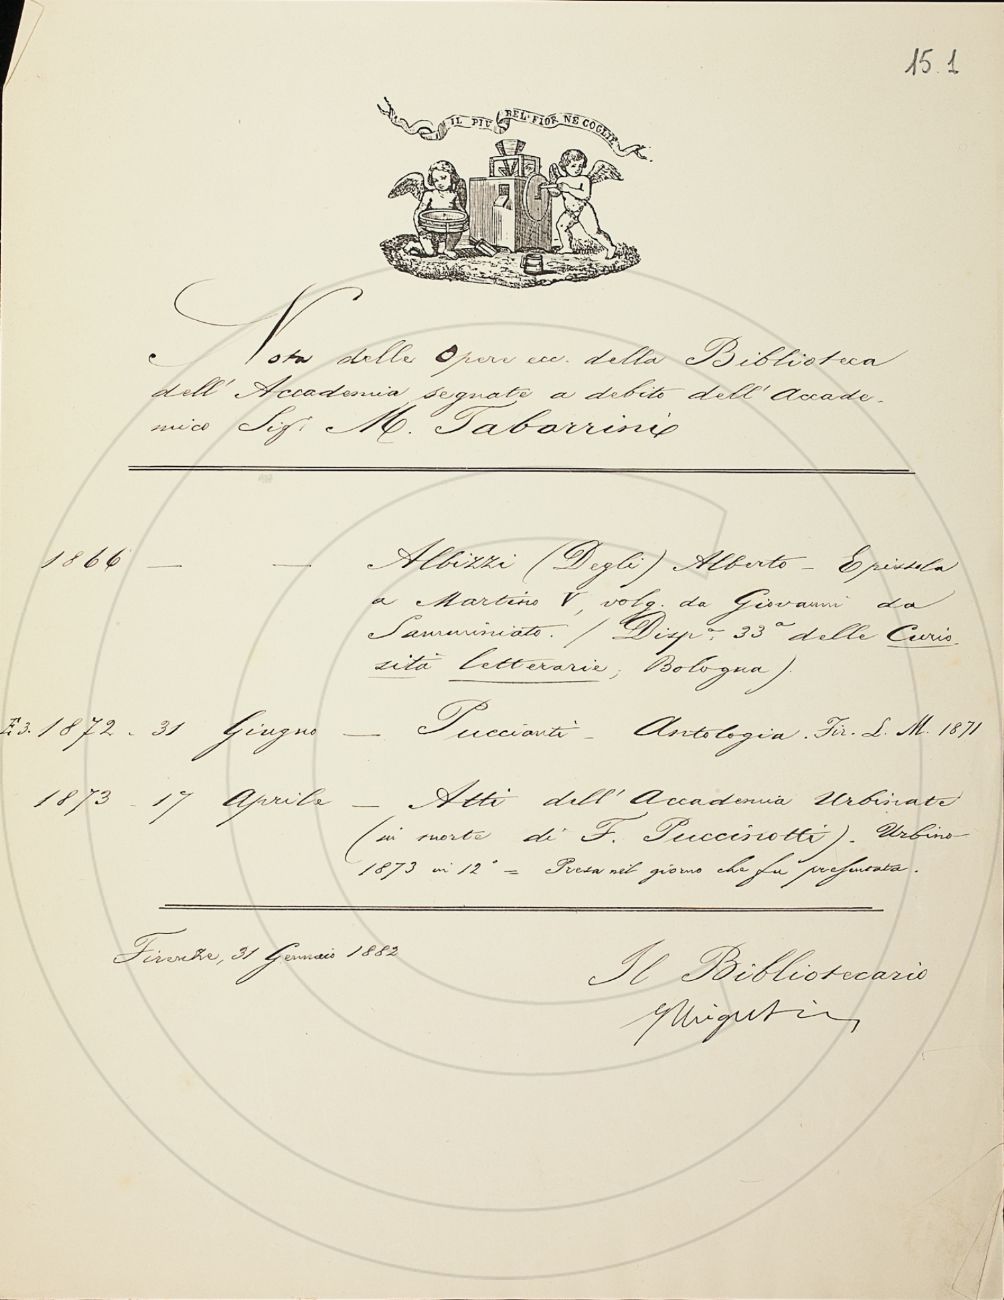 15.1
IL PIÙ BEL FIOR NE COGLIE
Nota delle Opere ecc. della Biblioteca
dell'Accademia segnate a debito dell'Accade-
mico Sig. M. Tabarrini
1866 — — Albizzi (Degli) Alberto – Epistola
a Martino V, volg. da Giovanni da
Samminiato. (Disp.ª 33ª delle Curio
sità letterarie, Bologna).
1872 - 31 Giugno — Puccianti – Antologia. Fir. L. M. 1871
1873 - 17 Aprile — Atti dell'Accademia Urbinate
(in morte di F. Puccinotti). Urbino
1873 in 12° = Presa nel giorno che fu presentata.
Firenze, 31 Gennaio 1882
Il Bibliotecario